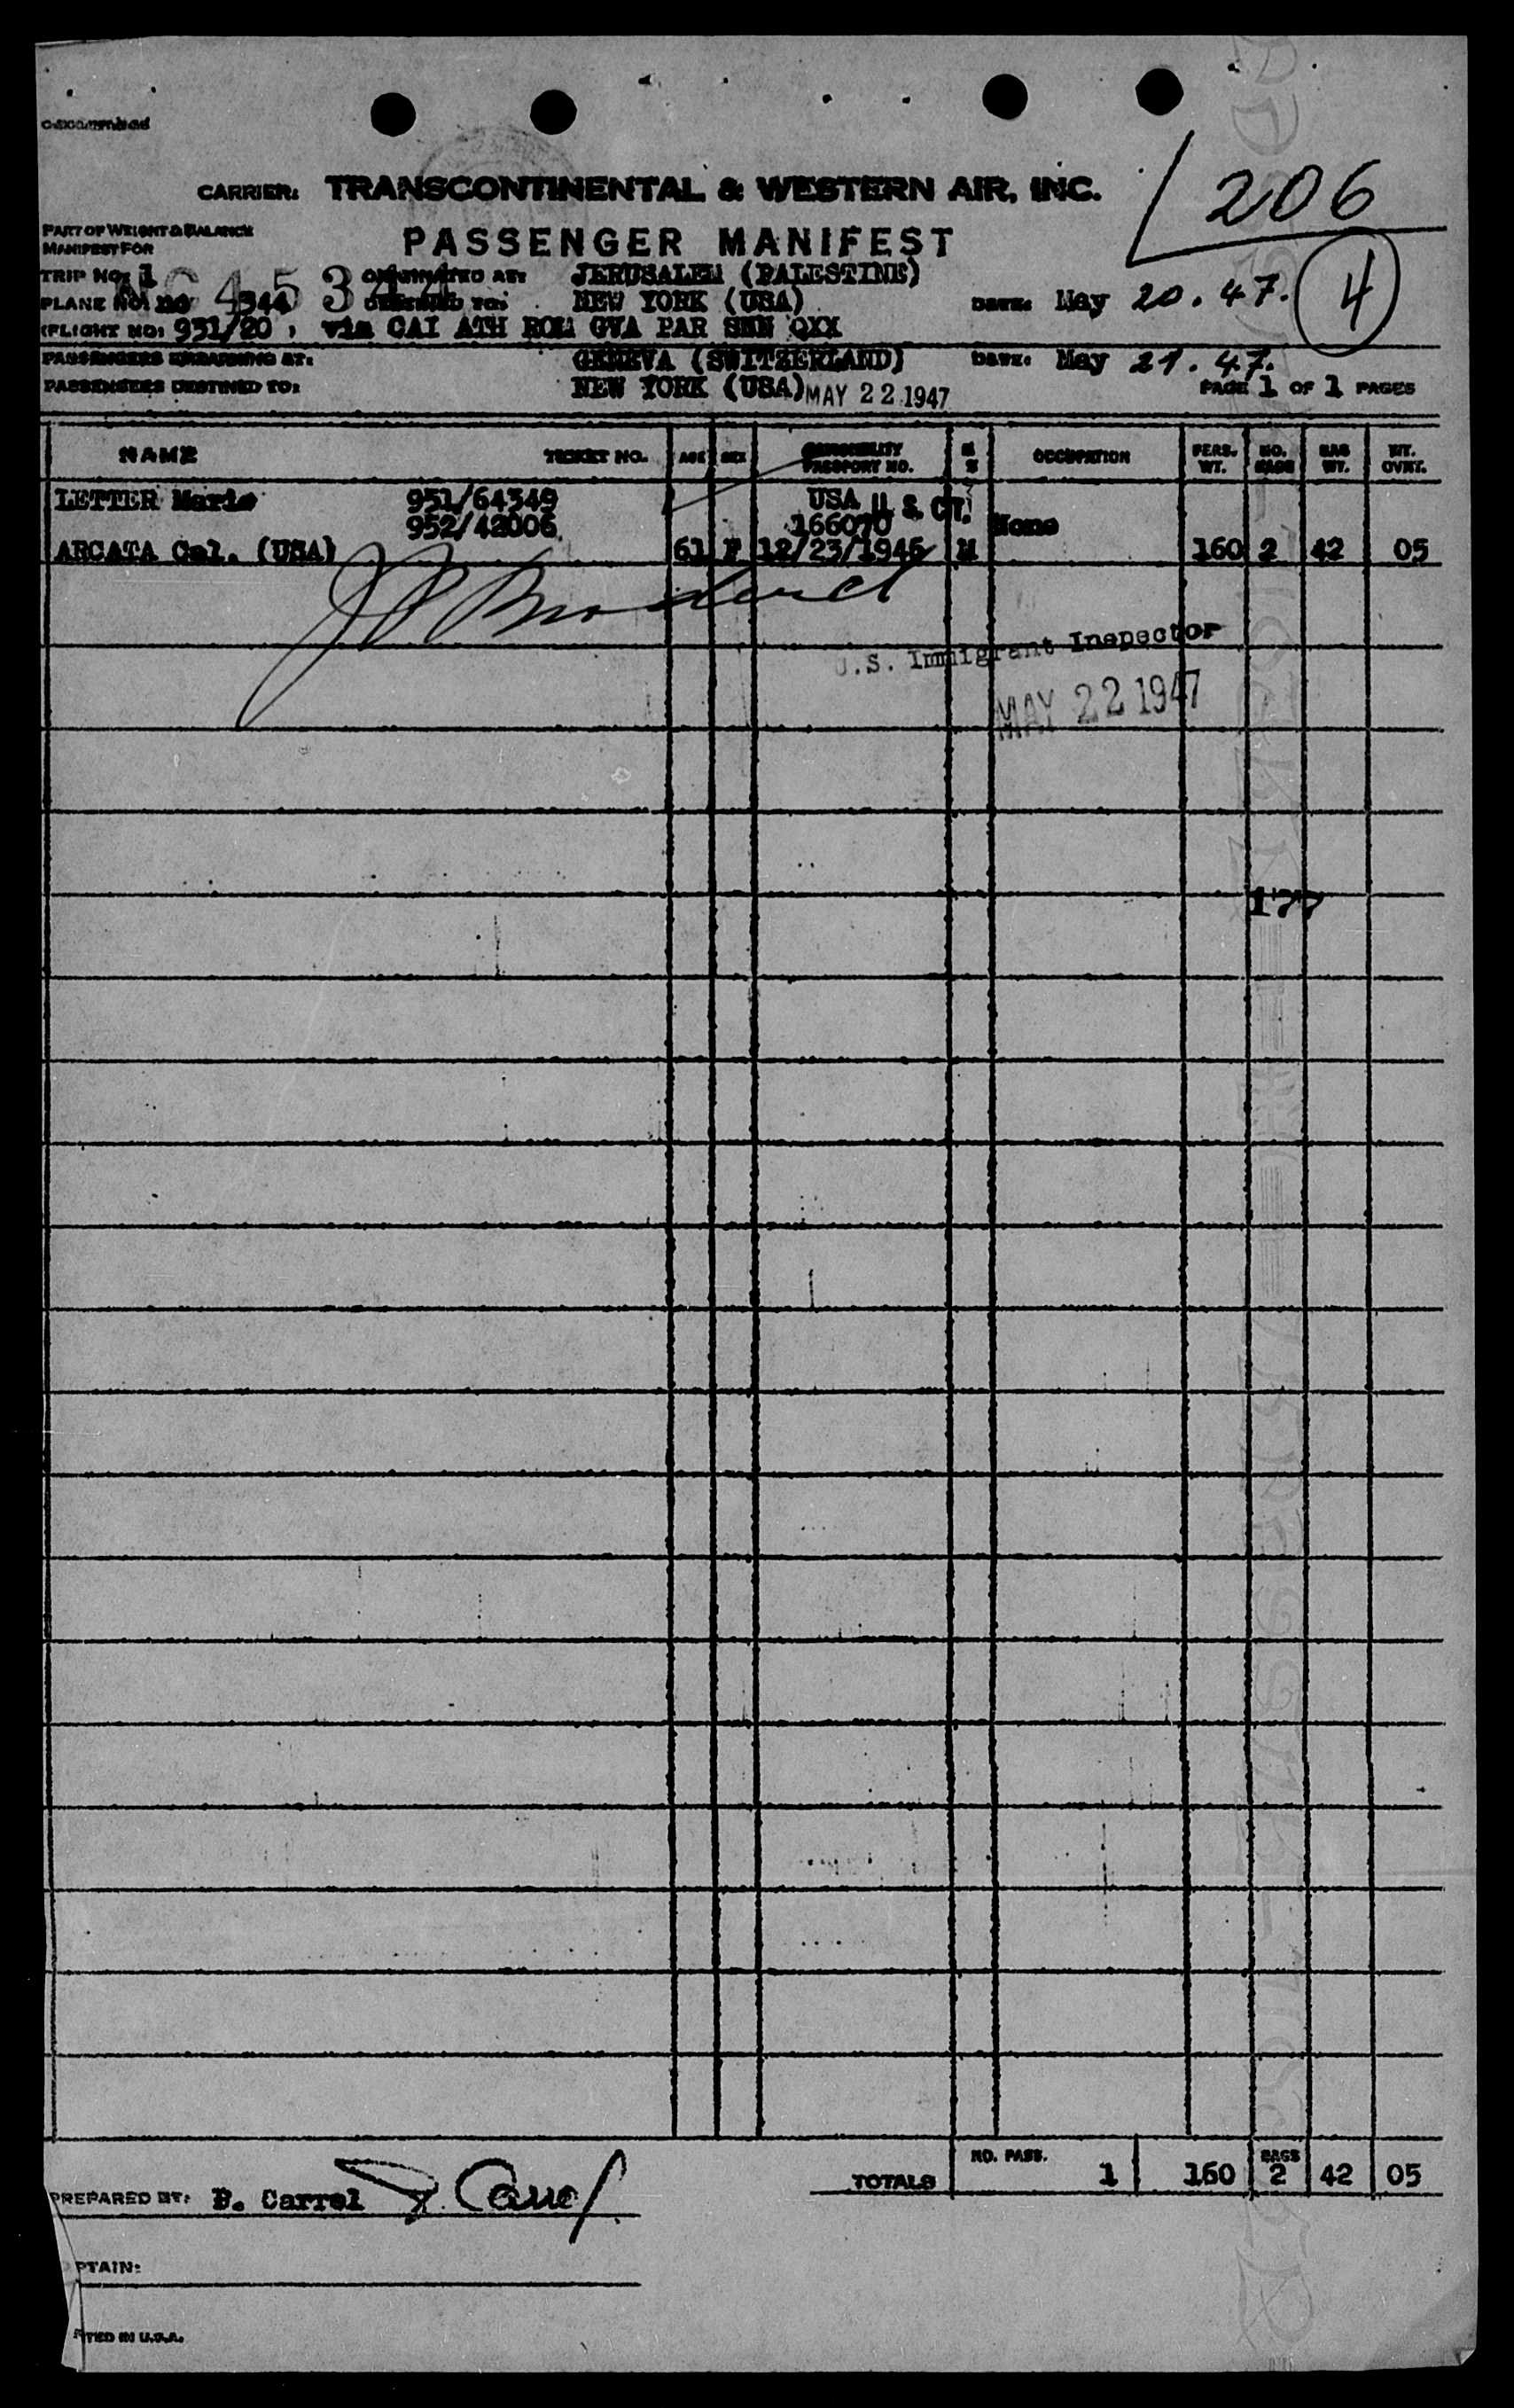 CARRIER: TRANSCONTINENTAL & WESTERN AIR, INC.
206
PART OF WEIGHT & BALANCE
MANIFEST FOR
PASSENGER MANIFEST
TRIP NO: 1 ORIGINATED AT: JERUSALEM (PALESTINE)
PLANE NO: NC 45344 DESTINED TO: NEW YORK (USA) DATE: May 20. 47. 4
(FLIGHT NO: 951/20) via CAI ATH ROM GVA PAR SNN QXX
PASSENGERS EMBARKING AT: GENEVA (SWITZERLAND) DATE: May 21. 47.
PASSENGERS DESTINED TO: NEW YORK (USA) MAY 22 1947 PAGE 1 OF 1 PAGES
NAME TICKET NO. AGE SEX NATIONALITY PASSPORT NO. M S OCCUPATION PERS. WT. NO. BAGS BAG WT. WT. OVWT.
LETTER Marie 951/64349 USA U. S. CIT.
952/42006 166070 None
ARCATA Cal. (USA) 61 F 12/23/1946 M 160 2 42 05
U.S. Immigrant Inspector
MAY 22 1947
177
TOTALS NO. PASS. 1 160 BAGS 2 42 05
PREPARED BY: B. Carrel
PTAIN:
TED IN U.S.A.